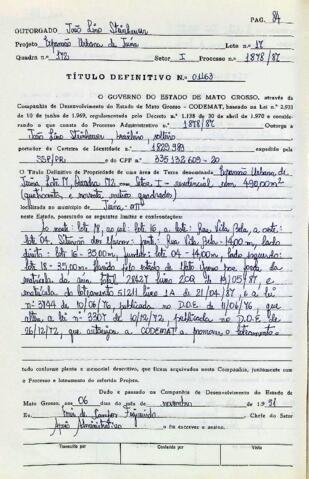 PAG. 84
OUTORGADO João Lino Steinheuser
Projeto Expansão Urbana de Juína Lote n.º 17
Quadra n.º 172 Setor I Processo n.º 1878/87
TÍTULO DEFINITIVO N.º 01163
O GOVERNO DO ESTADO DE MATO GROSSO, através da
Companhia de Desenvolvimento do Estado de Mato Grosso - CODEMAT, com base na Lei n.º 2.933
10 de junho de 1969, regulamentado pelo Decreto n.º 1.138 de 30 de abril de 1970 e conside-
rando o que consta do Processo Administrativo n.º 1878/87 Outorga a
João Lino Steinheuser, brasileiro, solteiro
portador da Carteira de Identidade n.º 1829989 expedida pela
SSP/PR e do CPF n.º 335 132 609-20
O Título Definitivo de Propriedade de uma área de Terra denominada Expansão Urbana de
Juína Lote 17, Quadra 172 Setor I - residencial, com 490,00m²
(quatrocentos e noventa metros quadrados)
localizada no município de Juína - MT
neste Estado, possuindo os seguintes limites e confrontações:
Ao norte: lote 18, ao sul: lote 16, a leste: Rua Vila Bela, a oeste:
lote 04. frente: Rua Vila Bela - 14,00 m, lado
direito: lote 16 - 35,00 m, fundos: lote 04 - 14,00 m, lado esquerdo:
lote 18 - 35,00 m. pelo estado de Mato Grosso por força da
matrícula da área total 28427 livro 2 de 19/05/87, e
matrícula do loteamento 51211 livro 1A de 21/04/87, e a Lei
n.º 3944 de 10/06/76, publicada no D.O.E. de 11/06/76 que
altera a lei n.º 3307 de 10/12/72, publicada no D.O.E. de
26/12/72, que autoriza a CODEMAT a promover o loteamento
tudo conforme planta e memorial descritivo, que ficam arquivados nesta Companhia, juntamente com
o Processo e loteamento do referido Projeto.
Dado e passado na Companhia de Desenvolvimento do Estado de
Mato Grosso, aos 06 dias do mês de novembro de 1991
Eu, de Campos Chefe do Setor
Apoio Administrativo o fiz escrever e assino.
Transcrito por Conferido por Visto